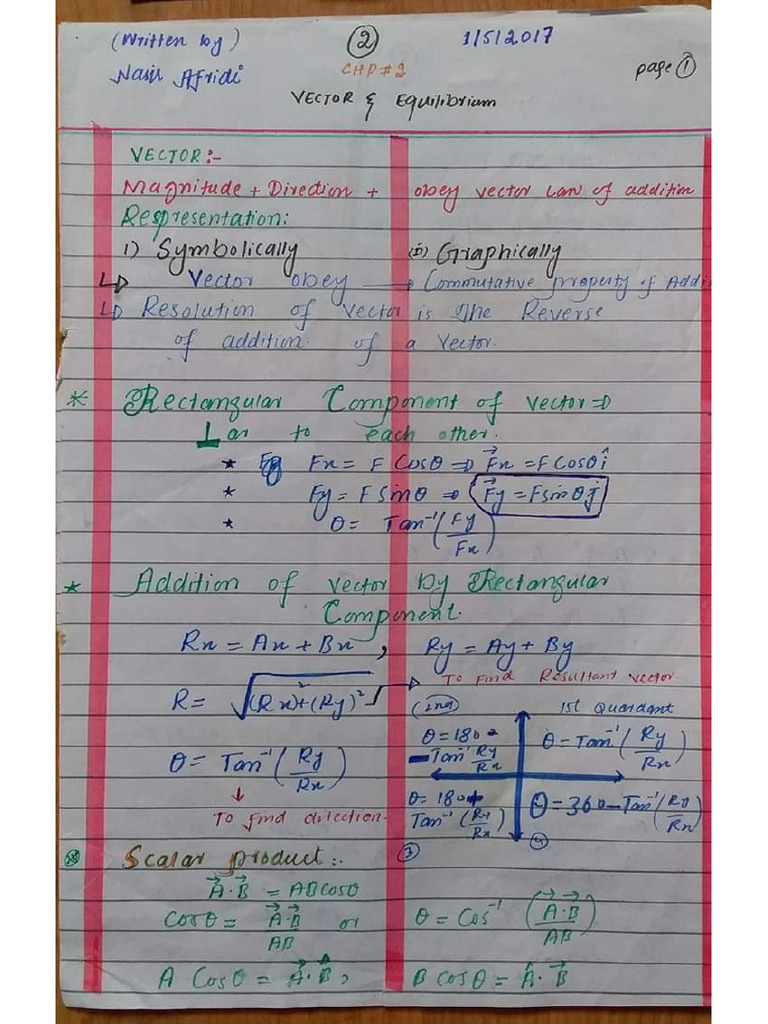 (Written by) ② 1/5/2017
Nasir Afridi CHP#2 page ①
VECTOR & Equilibrium
VECTOR:-
Magnitude + Direction + obey vector law of addition
Respresentation:
i) Symbolically (ii) Graphically
↳ Vector obey → Commutative property of Addi
↳ Resolution of vector is The Reverse
of addition. of a Vector.
* Rectangular Component of vector ⇒
⊥ar to each other.
* Fx = F Cosθ ⇒ F⃗x = F Cosθ î
* Fy = F sinθ ⇒ F⃗y = F sinθ ĵ
* θ = Tan⁻¹(Fy/Fx)
* Addition of vector by Rectangular
Component.
Rx = Ax + Bx , Ry = Ay + By
R = √(Rx)²+(Ry)² → To Find Resultant vector
(2nd) 1st Quardant
θ = 180° - Tan⁻¹ Ry/Rx θ = Tan⁻¹(Ry/Rx)
θ = Tan⁻¹(Ry/Rx)
↓
To find direction.
θ = 180 + Tan⁻¹(Ry/Rx) θ = 360 - Tan⁻¹(Ry/Rx)
③ ④
Scalar product:.
A⃗.B⃗ = ABcosθ
Cosθ = A⃗.B⃗/AB or θ = Cos⁻¹(A⃗.B⃗/AB)
A Cosθ = A⃗.B̂ , B cosθ = Â.B⃗